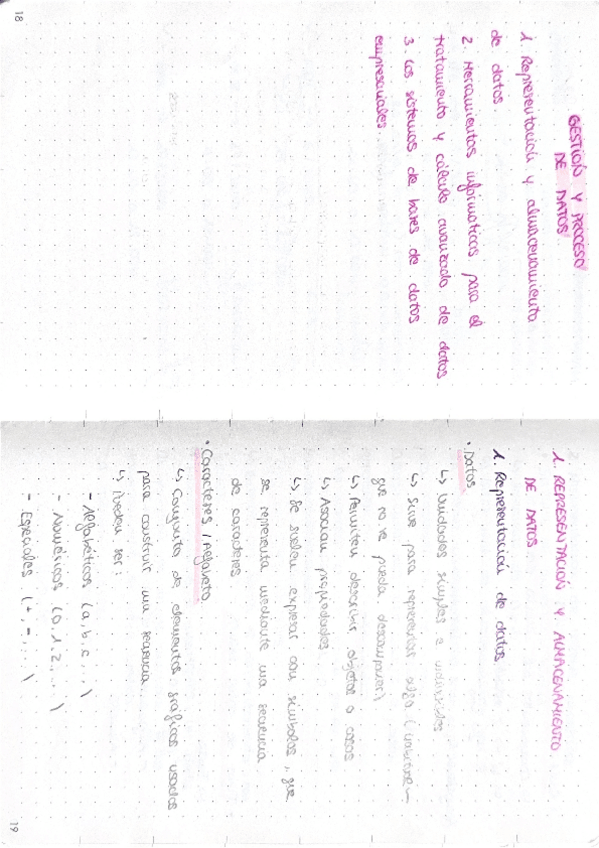 18
GESTIÓN Y PROCESO
DE DATOS
1. Representación y almacenamiento
de datos.
2. Herramientas informáticas para el
tratamiento y cálculo avanzado de datos
3. Los sistemas de bases de datos
empresariales.
1. REPRESENTACIÓN Y ALMACENAMIENTO
DE DATOS
1. Representación de datos
• Datos
↳ Unidades simples e indivisibles.
↳ Sirve para representar algo (
que no se pueda descomponer)
↳ Permiten describir objetos o cosas
↳ Asocian propiedades
↳ Se suelen expresar con símbolos, que
se representa mediante una secuencia
de caracteres.
• Caracteres / Alfabeto
↳ Conjunto de elementos gráficos usados
para construir una secuencia.
↳ Pueden ser:
- Alfabéticos (a, b, c, ...)
- Numéricos (0, 1, 2, ...)
- Especiales (+, =, ...)
19